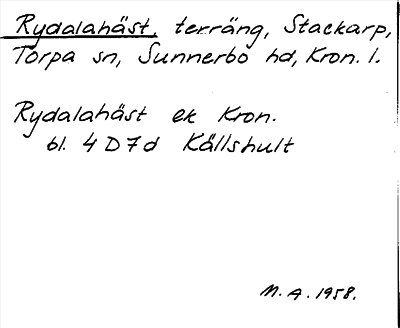 Rydalahäst, terräng, Stackarp,
Torpa sn, Sunnerbo hd, Kron. l.
Rydalahäst ek Kron.
bl. 4 D 7 d Källshult
M. A. 1958.